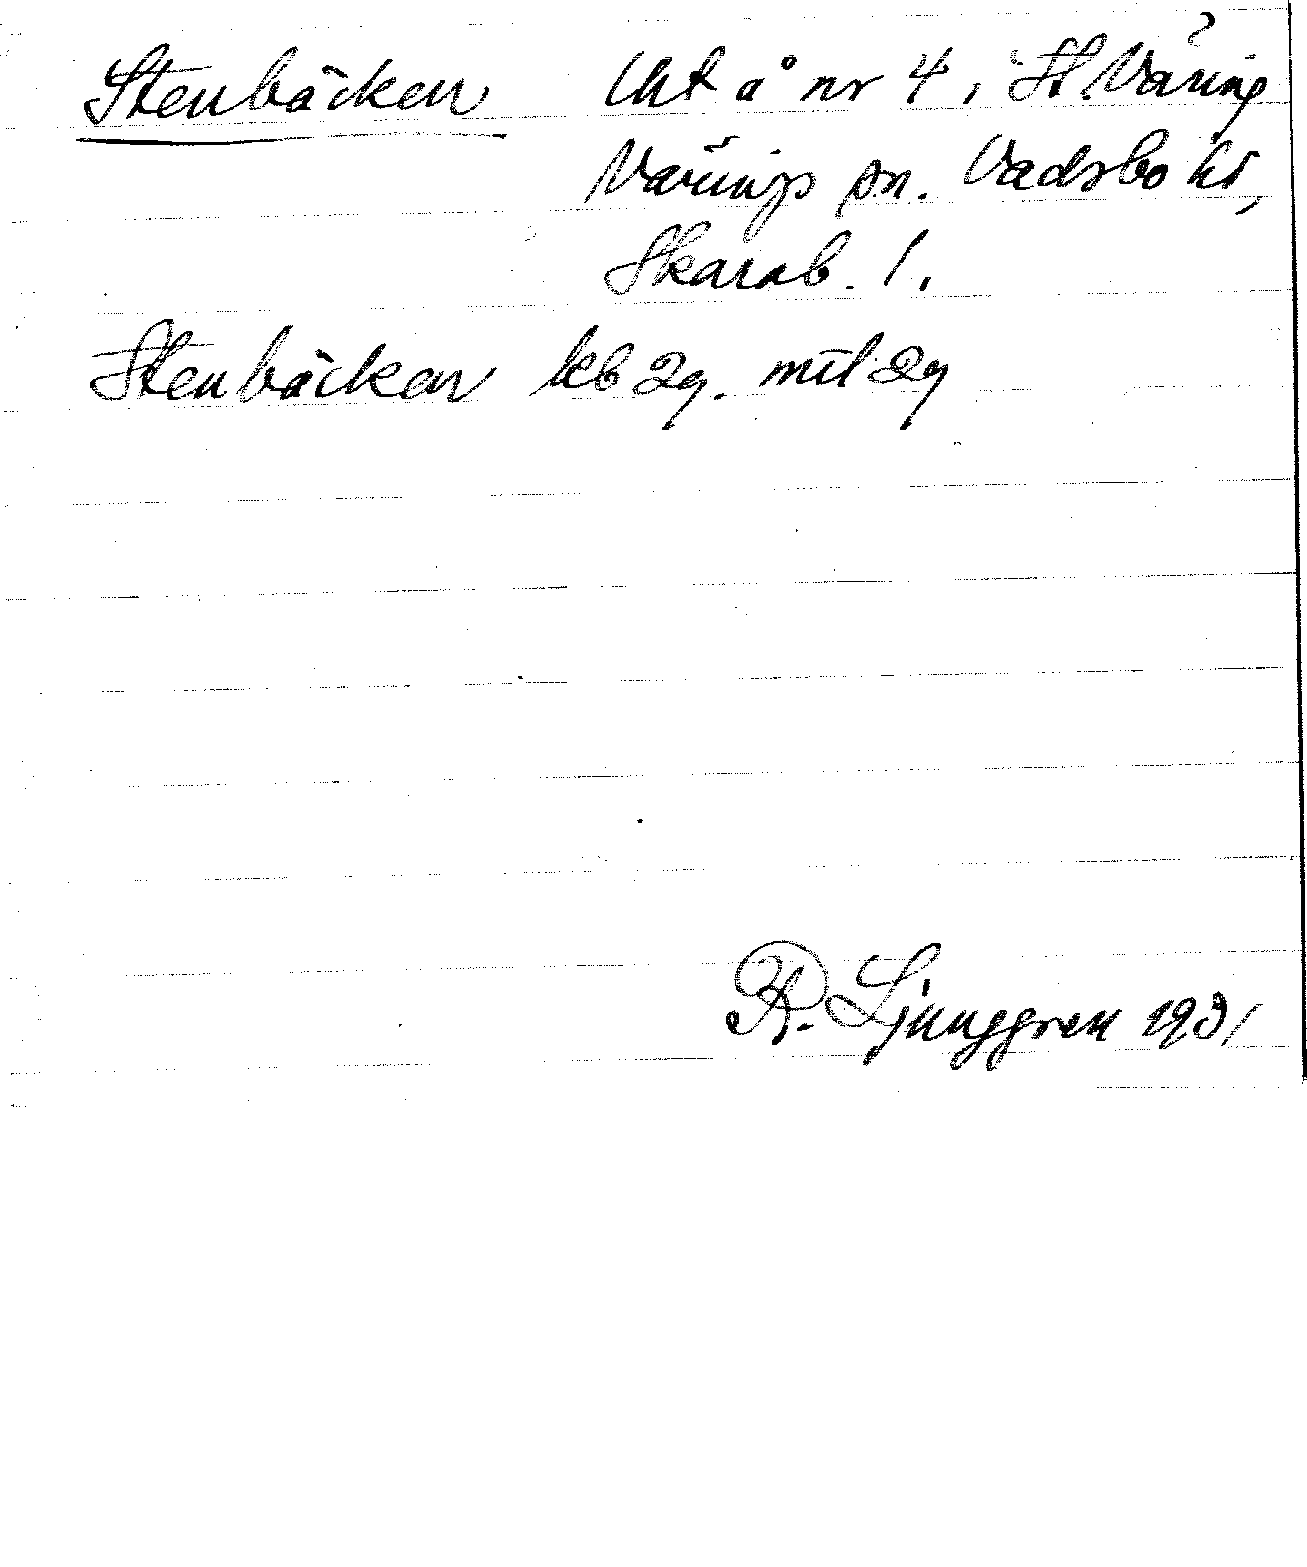 Stenbäcken lht å nr 4 i St. Väring
Värings sn. Vadsbo hd,
Skarab. l.
Stenbäcken kb 29. mtl 29
R. Ljunggren 1931